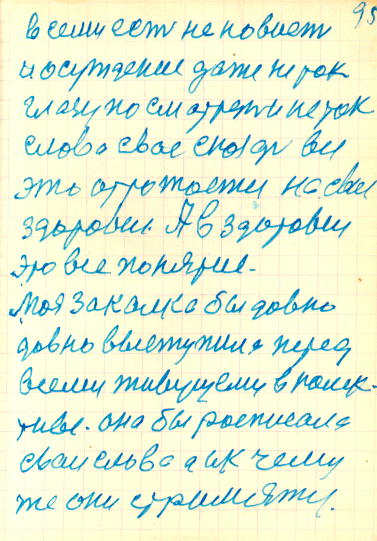 95
всеми ест не новист
и осуждение даже не так
глазу посмотрет и не так
слова свое сказал вы
это отрожаети на свои
здоровии. А в здоровии
это все понятие.
Моя закалка бы довно
довно выступила перед
всеми живущеми в колек-
тиве. она бы росписала
сваи слова а к чему
же они стримяти.